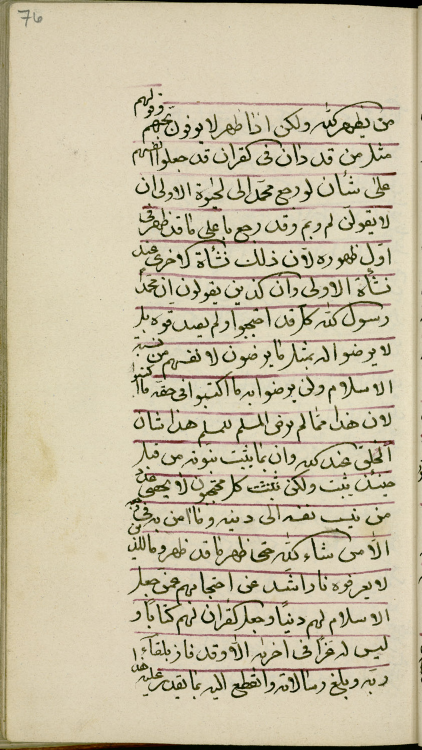 76
من يظهره الله ولكن اذا ظهر لا يوفون بعهدهم وقولهم
مثل من قد دان في القران قد جعلوا انفسهم
على شأن لو رجع محمد الى الحيوة الاولى ان
لا يقولن لم وبم وقد رجع ما على ما قد ظهر في
اول ظهوره لان ذلك نشأة الاخرى عند
نشأة الاولى وان الذين يقولون ان محمدا
رسول الله كل قد احتجبوا ولم يصدقوه بل
لا يرضوا له بمثل ما يرضون لانفسهم من نسبة
الاسلام ولن يرضوا به ما اكتسبوا في حقه ما
لان هذا مما لم يرض المسلم للمسلم هذا شأن
الخلق عند الله وان بما يثبت نبوته من قبل
حينئذ يثبت ولكن كل محتجبون لا
من ينسب نفسه الى دينه وما امن به في
الا من شاء الله حتى ظهر ما قد ظهر وما
لا يعرفوه نارا اشد عن احتجابهم عمن جعل
الاسلام لهم دينا وجعل القران لهم كتابا و
ليس له عزا في اخريه الا وقد فاز بلقاء
ربه وبلغ رسالاته وانقطع اليه بما يقدر عليه هذا